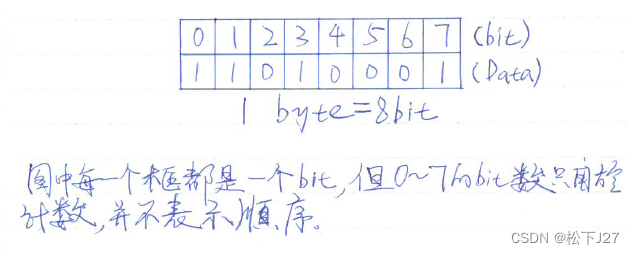 0 1 2 3 4 5 6 7 (bit)
1 1 0 1 0 0 0 1 (Data)
1 byte=8bit
图中每一个框都是一个bit,但0~7的bit数只用于
计数,并不表示顺序。
CSDN @松下J27